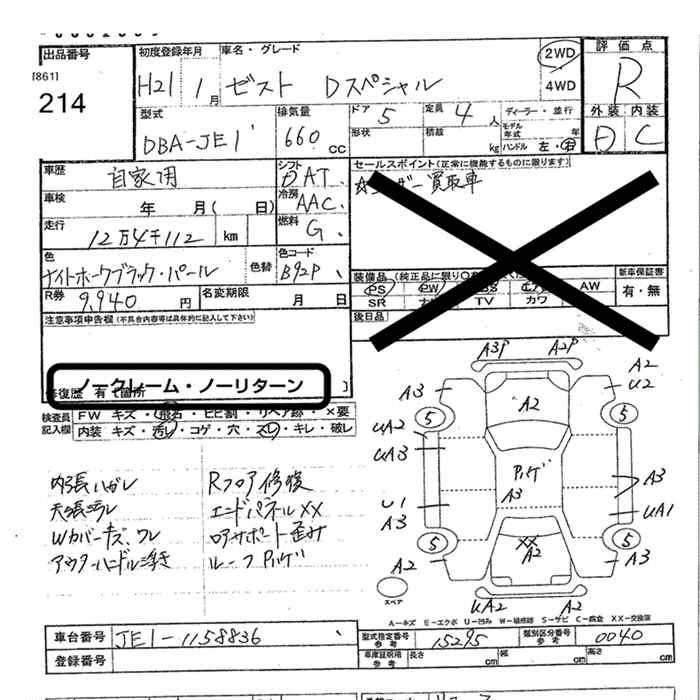 出品番号
[861]
214
初度登録年月
H21 1月
車名・グレード
ゼスト Dスペシャル
2WD
4WD
評価点
R
外装 内装
D C
型式
DBA-JE1
排気量
660 cc
ドア 5
定員 4人
形状
積載
kg
ディーラー・並行
モデル年式 年
ハンドル 左・右
車歴
自家用
シフト
DAT
車検
年 月( 日)
冷房
AAC
走行
12万4千112 km
燃料
G
色
ナイトホークブラック・パール
色替
色コード
B92P
R券
9,940円
名変期限
月 日
セールスポイント(正常に機能するものに限ります)
ユーザー買取車
新車保証書
有・無
PS
PW
AW
SR
TV
カワ
後日品
注意事項申告欄(不具合内容等は具体的に記入して下さい)
ノークレーム・ノーリターン
修復歴 有 箇所
検査員記入欄
FW キズ・飛石・ヒビ割・リペア跡・×要
内装 キズ・汚レ・コゲ・穴・スレ・キレ・破レ
内張ハガレ
天張汚レ
Wカバーキズ、ワレ
アウターハンドル浮き
Rフロア修復
エンドパネルXX
ロアサポート歪み
ルーフPハゲ
A3P
A2P
A3
A2
U2
5
5
A2
UA2
UA3
Pハゲ
A3
A3
U1
A3
UA1
5
5
XX
A2
A2
A3
UA2
A2
スペア
A-キズ E-エクボ U-凹み W-補修跡 S-サビ C-腐食 XX-交換済
車台番号
JE1-1158836
型式指定番号
参考
15295
類別区分番号
参考
0040
登録番号
車庫証明用
参考
長さ cm
幅 cm
高さ cm